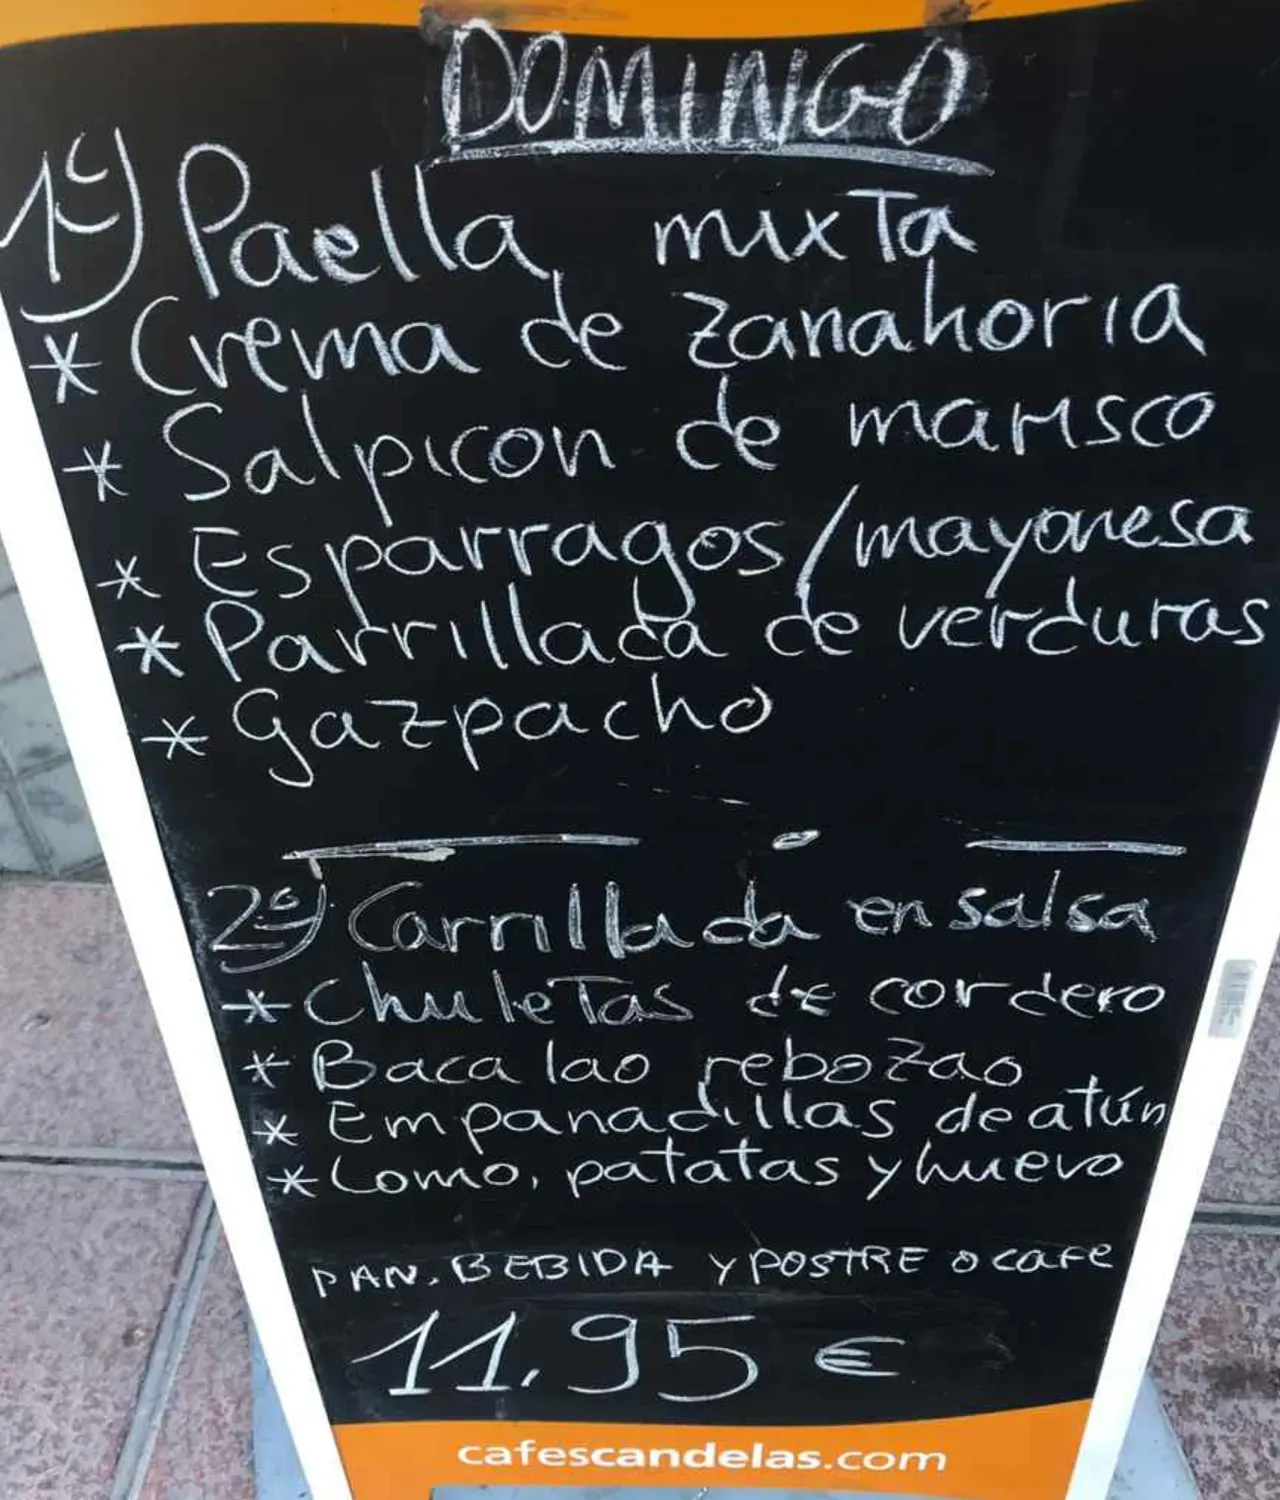 DOMINGO
1º) Paella mixta
* Crema de zanahoria
* Salpicon de marisco
* Esparragos/mayonesa
* Parrillada de verduras
* Gazpacho
2º) Carrillada en salsa
* Chuletas de cordero
* Bacalao rebozao
* Empanadillas de atún
* Lomo, patatas y huevo
PAN, BEBIDA Y POSTRE O CAFE
11,95 €
cafescandelas.com